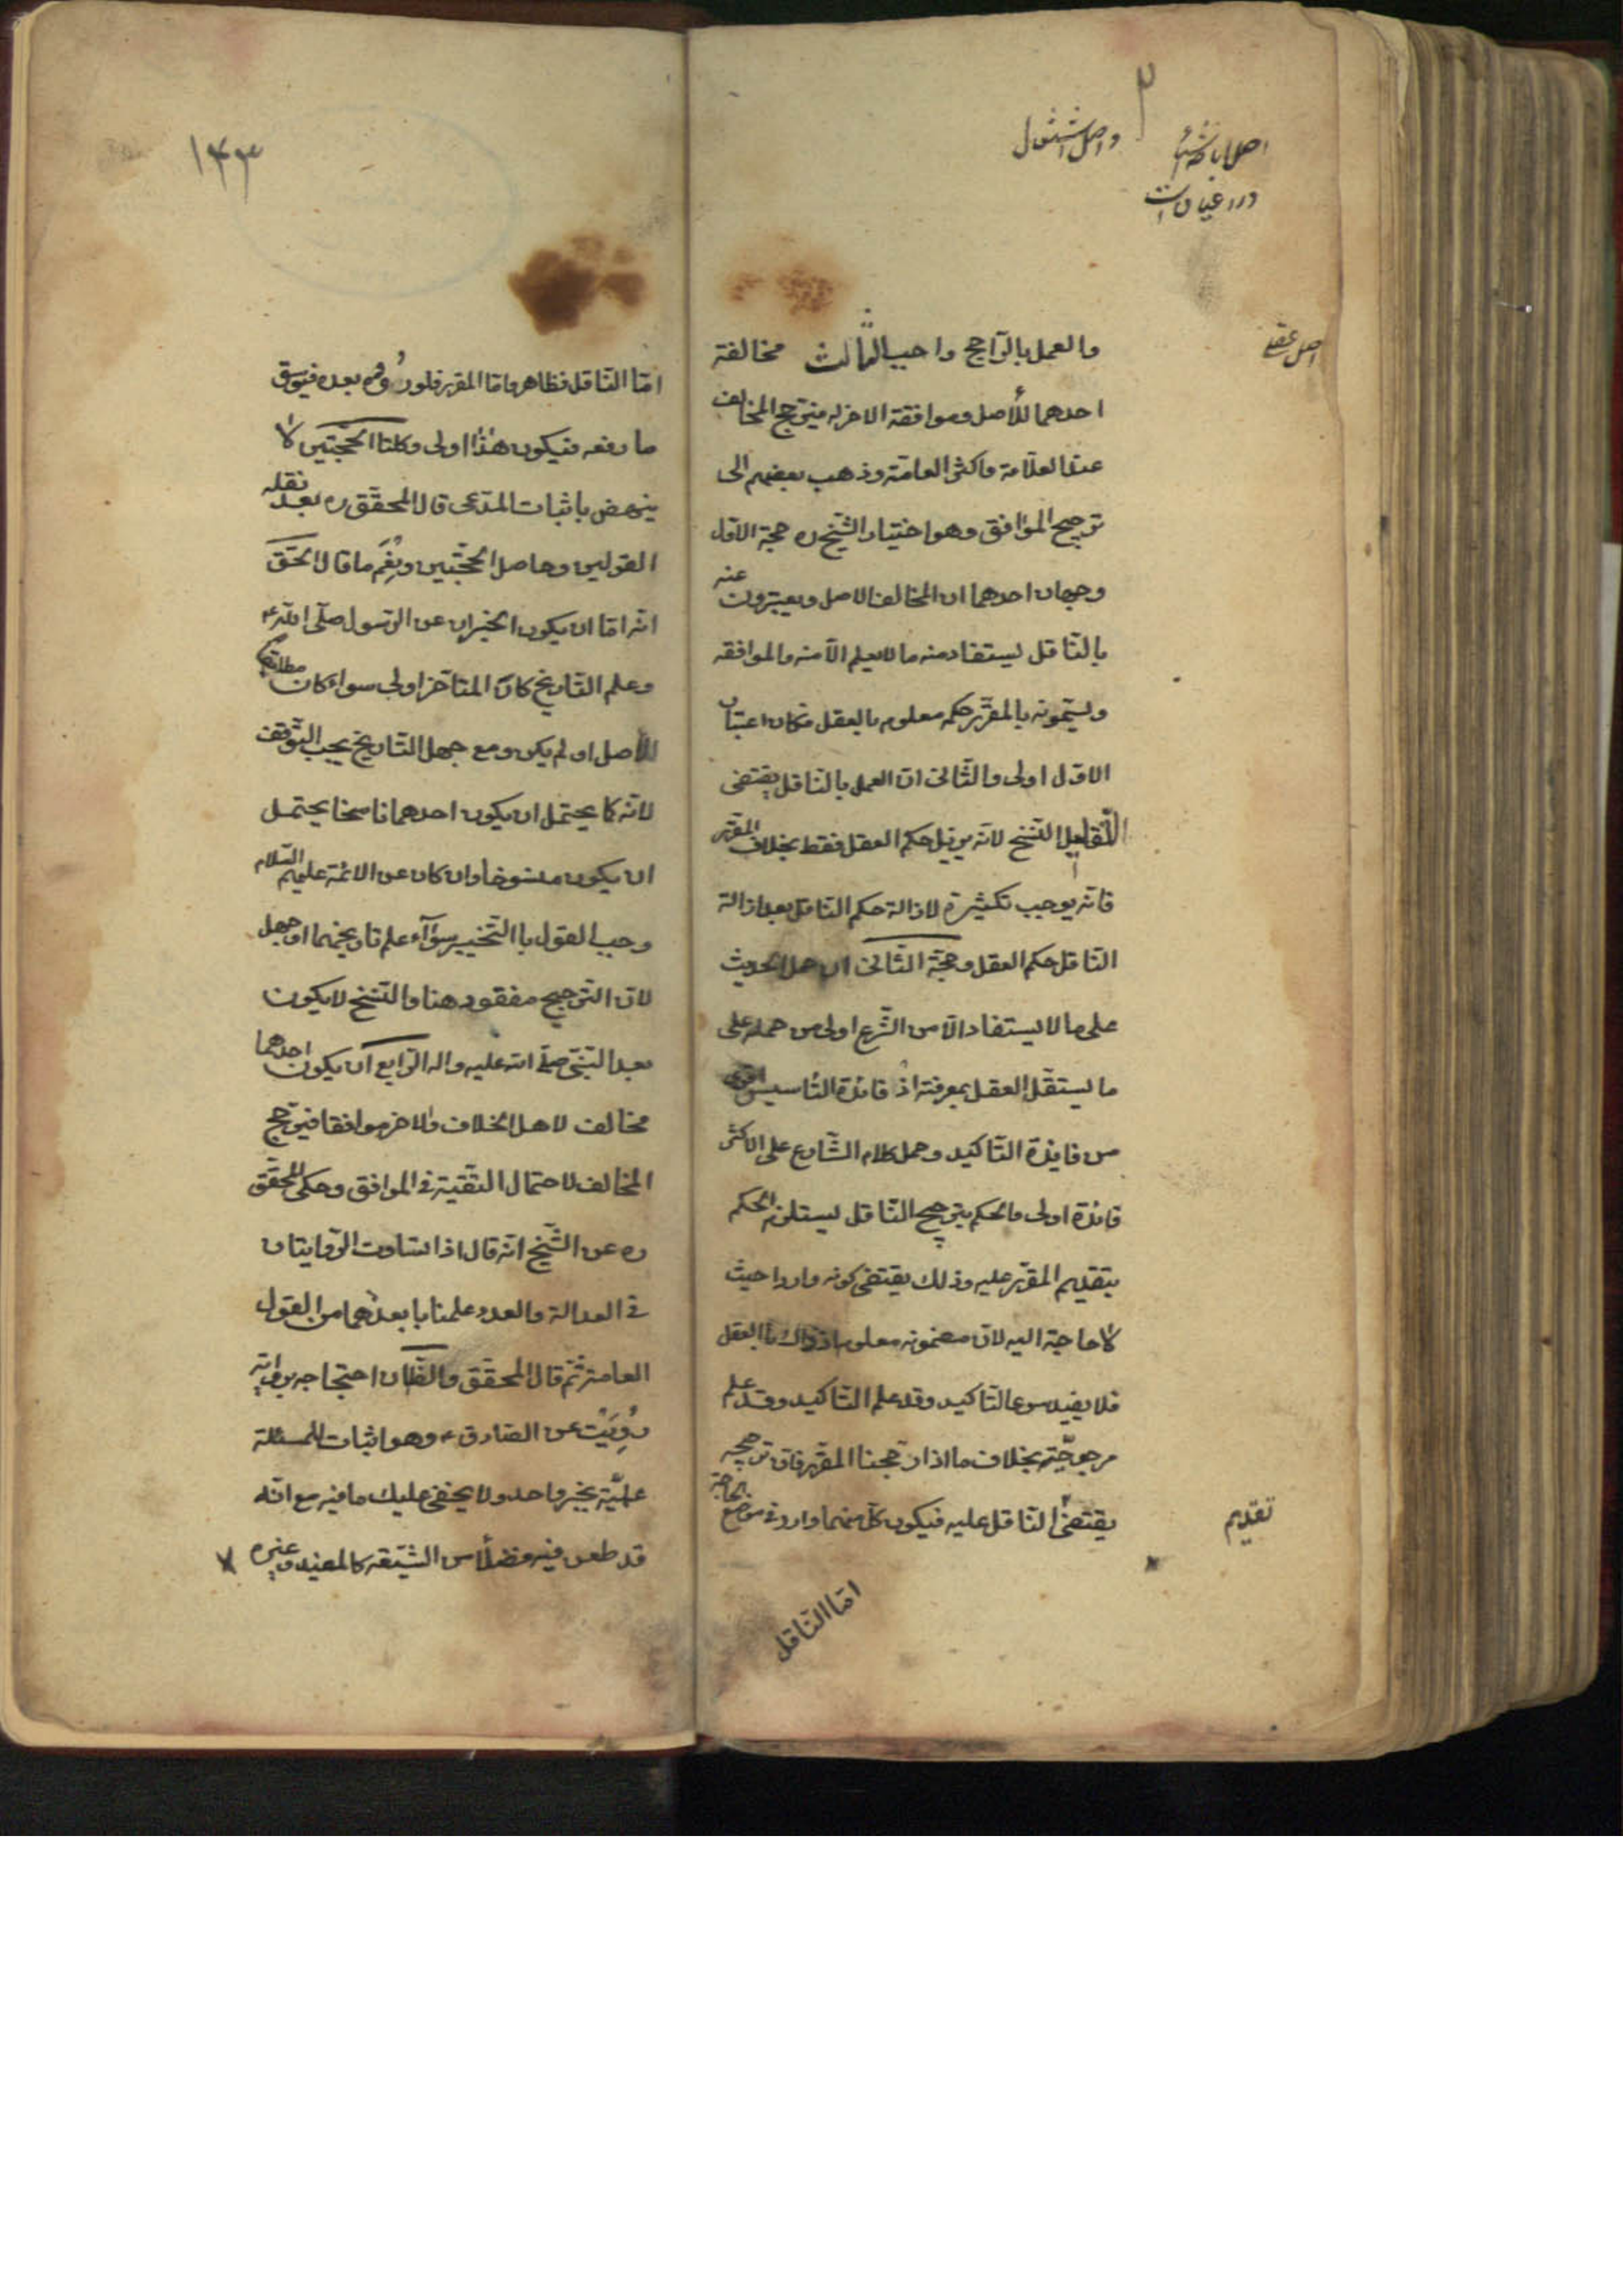 واصل اشتغال
اصل عقلی
والعمل بالرّاجح واجب الثّالث مخالفة
احدهما للأصل وموافقة الاخر له فيترجح المخالف
عند العلّامة واكثر العامّة وذهب بعضهم الى
ترجيح الموافق وهو اختيار الشّيخ ره حجة الاوّل
وجهان احدهما ان المخالف للاصل ويعبّرون عنه
بالنّاقل يستفاد منه ما لا يعلم الّا منه والموافقه
ويسمّونه بالمقرّر حكمه معلوم بالعقل فكان اعتبار
الاوّل اولى والثّانى انّ العمل بالنّاقل يقتضى
النّسخ لانّه يزيل حكم العقل فقط بخلاف المقرّر
فانّه يوجب تكثيره لازالة حكم النّاقل بعد ازالة
النّاقل حكم العقل وحجّة الثّانى ان حمل الحديث
على ما لا يستفاد الّا من الشّرع اولى من حمله على
ما يستقلّ العقل بمعرفته اذ فائدة التّاسيس اقوى
من فايدة التّاكيد وحمل كلام الشّارع على الاكثر
فائدة اولى والحكم بترجيح النّاقل يستلزم الحكم
بتقديم المقرّر عليه وذلك يقتضى كونه واردا حيث
لا حاجة اليه لانّ مضمونه معلوم اذ ذاك بالعقل
فلا يفيد سوى التّاكيد وقد علم التّاكيد وقد علم
مرجوحيّته بخلاف ما اذا رجّحنا المقرّر فانّ ترجيحه
يقتضى النّاقل عليه فيكون كلّ منهما وارد فى موضع الحاجة
تقدّم
امّا النّاقل
١٤٣
امّا النّاقل فظاهر وامّا المقرّر فلوروده بعده فيؤسق
ما رفعه فيكون هذا اولى وكلتا الحجّتين لا
ينهض باثبات المدّعى قال المحقّق ره بعد نقله
القولين وحاصل الحجّتين ونِعْمَ ما قال الحَقّ
انّه امّا ان يكون الخبران عن الرّسول صلّى اللّه
وعلم التّاريخ كان المتأخر اولى سواء كان مطابقا
للأصل او لم يكن ومع جهل التّاريخ يجب التّوقف
لانّه كما يحتمل ان يكون احدهما ناسخا يحتمل
ان يكون منسوخا وان كان عن الائمّة عليهم السّلام
وجب القول باالتّخيير سوآء علم تاريخهما او جهل
لانّ التّرجيح مفقود هنا والنّسخ لا يكون
بعد النّبىّ صلّى اللّه عليه واله الرّابع ان يكون احدهما
مخالف لاهل الخلاف والاخر موافقا فيترجّح
المخالف لاحتمال التّقيّة فى الموافق وحكى المحقّق
ره عن الشّيخ انّه قال اذا تساوت الرّوايتان
فى العدالة والعدد علمنا بابعدهما من القول
العامة ثمّ قال المحقّق والظّان احتجاجه برواية
رُوِيَتْ عن الصّادق ع وهو اثبات للمسئلة
علميّة بخبر واحد ولا يخفى عليك ما فيه مع انّه
قد طعن فيه فضلاً من الشّيعة كالمفيد وغيره